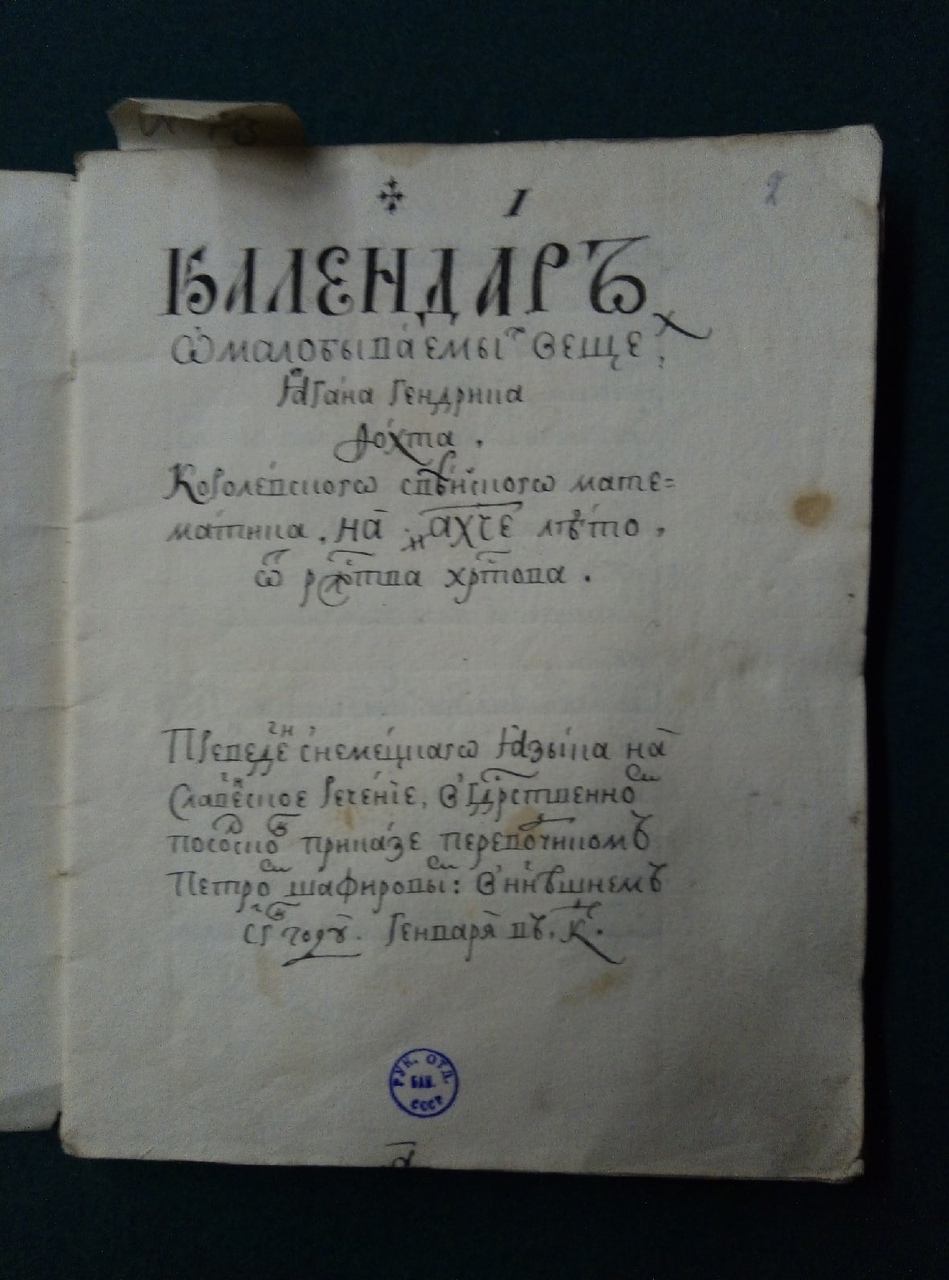 I
2
КАЛЕНДА́РЪ
Ѡ҆ малобыва́емыⷯ веще́ⷯ
Ꙗ҆га́на Гендрика
Фо́хта .
Короле́вскогѡ свѣ́йскогѡ мате=
ма́тика , на ҂аχче лѣ́то ,
ѿ рж҃тва хрⷭ҇това .
Преведе́ⷩ с̾неме́цкагѡ Ꙗ҆зы́ка на
Славе́нское Рече́нїе , в̾гдрⷭ҇твенноⷨ
посоⷧскоⷨ прика́зе перево́тчикомъ
Петроⷨ шафировыⷨ : в̾нн҃ѣшнемъ
году̀ . Генваря̀ въ . к҃ .
РУК. ОТД.
БАН.
СССР
а҃